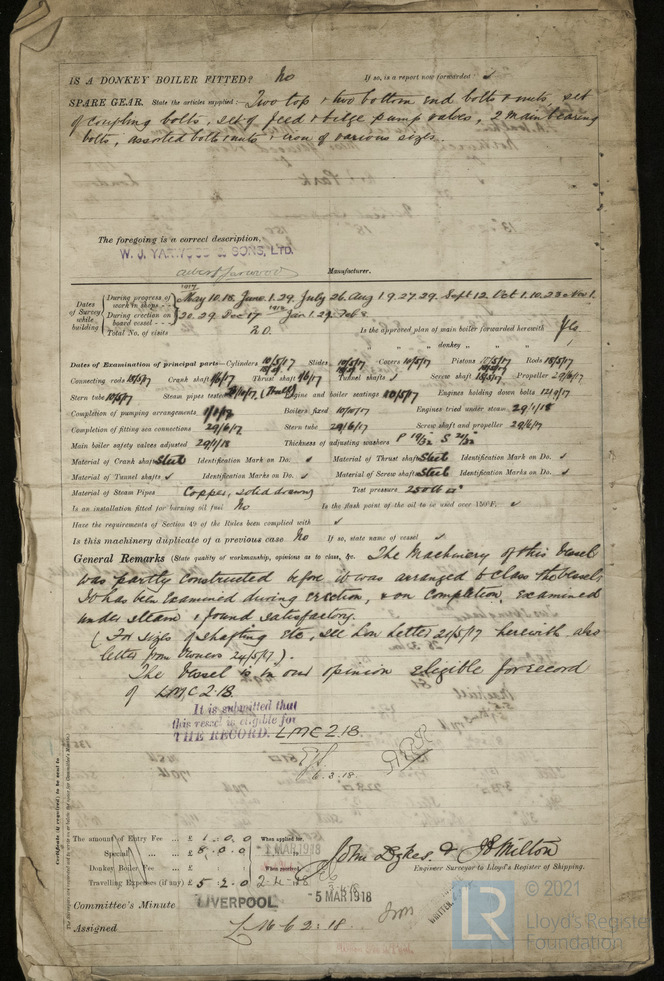 IS A DONKEY BOILER FITTED? No If so, is a report now forwarded? ✓
SPARE GEAR. State the articles supplied:— Two top & two bottom end bolts & nuts, set
of coupling bolts, set of feed & bilge pump valves, 2 main bearing
bolts, assorted bolts & nuts & iron of various sizes.
The foregoing is a correct description,
W. J. YARWOOD & SONS, LTD.
Manufacturer.
Dates of Survey while building
During progress of work in shops - - 1917 May 10.18. June 1.29. July 26. Aug 1.9.27.29. Sept 12. Oct 1.10.23 Nov 1.
During erection on board vessel - - - 20.29. Dec 17 1918 Jan 1.29. Feb 8.
Total No. of visits 20. Is the approved plan of main boiler forwarded herewith Yes
" " " donkey " " "
Dates of Examination of principal parts—Cylinders 10/5/17 Slides 10/5/17 Covers 10/5/17 Pistons Rods 18/5/17
Connecting rods 18/5/17 Crank shaft 1/6/17 Thrust shaft 1/6/17 Tunnel shafts ✓ Screw shaft Propeller 29/6/17
Stern tube 10/5/17 Steam pipes tested Engine and boiler seatings Engines holding down bolts 12/9/17
Completion of pumping arrangements Boilers fixed 10/10/17 Engines tried under steam 29/1/18
Completion of fitting sea connections 29/6/17 Stern tube 29/6/17 Screw shaft and propeller 29/6/17
Main boiler safety valves adjusted 29/1/18 Thickness of adjusting washers P 19/32 S 21/32
Material of Crank shaft Steel Identification Mark on Do. ✓ Material of Thrust shaft Steel Identification Mark on Do. ✓
Material of Tunnel shafts ✓ Identification Marks on Do. ✓ Material of Screw shafts Steel Identification Marks on Do. ✓
Material of Steam Pipes Copper, solid drawn Test pressure 250 lb □"
Is an installation fitted for burning oil fuel No Is the flash point of the oil to be used over 150°F. ✓
Have the requirements of Section 49 of the Rules been complied with ✓
Is this machinery duplicate of a previous case No If so, state name of vessel ✓
General Remarks (State quality of workmanship, opinions as to class, &c. The Machinery of this Vessel
was partly constructed before it was arranged to class the vessel,
It has been examined during erection, & on completion, examined
under steam & found satisfactory.
(For sizes of shafting etc, see Lon Letter 21/5/17 herewith also
letter from Owners 24/5/17).
The Vessel is in our opinion eligible for record
of LMC 2.18.
It is submitted that
this vessel is eligible for
THE RECORD. LMC 2.18.
6.3.18.
Certificate (if required) to be sent to
The amount of Entry Fee .. £ 1 : 0 : 0 When applied for,
Special .. .. £ 8 : 0 : 0 MAR 1918
Donkey Boiler Fee .. .. £ When received,
Travelling Expenses (if any) £ 5 : 2 : 0
John Dykes & J Milton
Engineer Surveyor to Lloyd's Register of Shipping.
Committee's Minute LIVERPOOL -5 MAR 1918
Assigned LMC 2:18
LR
© 2021
Lloyd's Register
Foundation